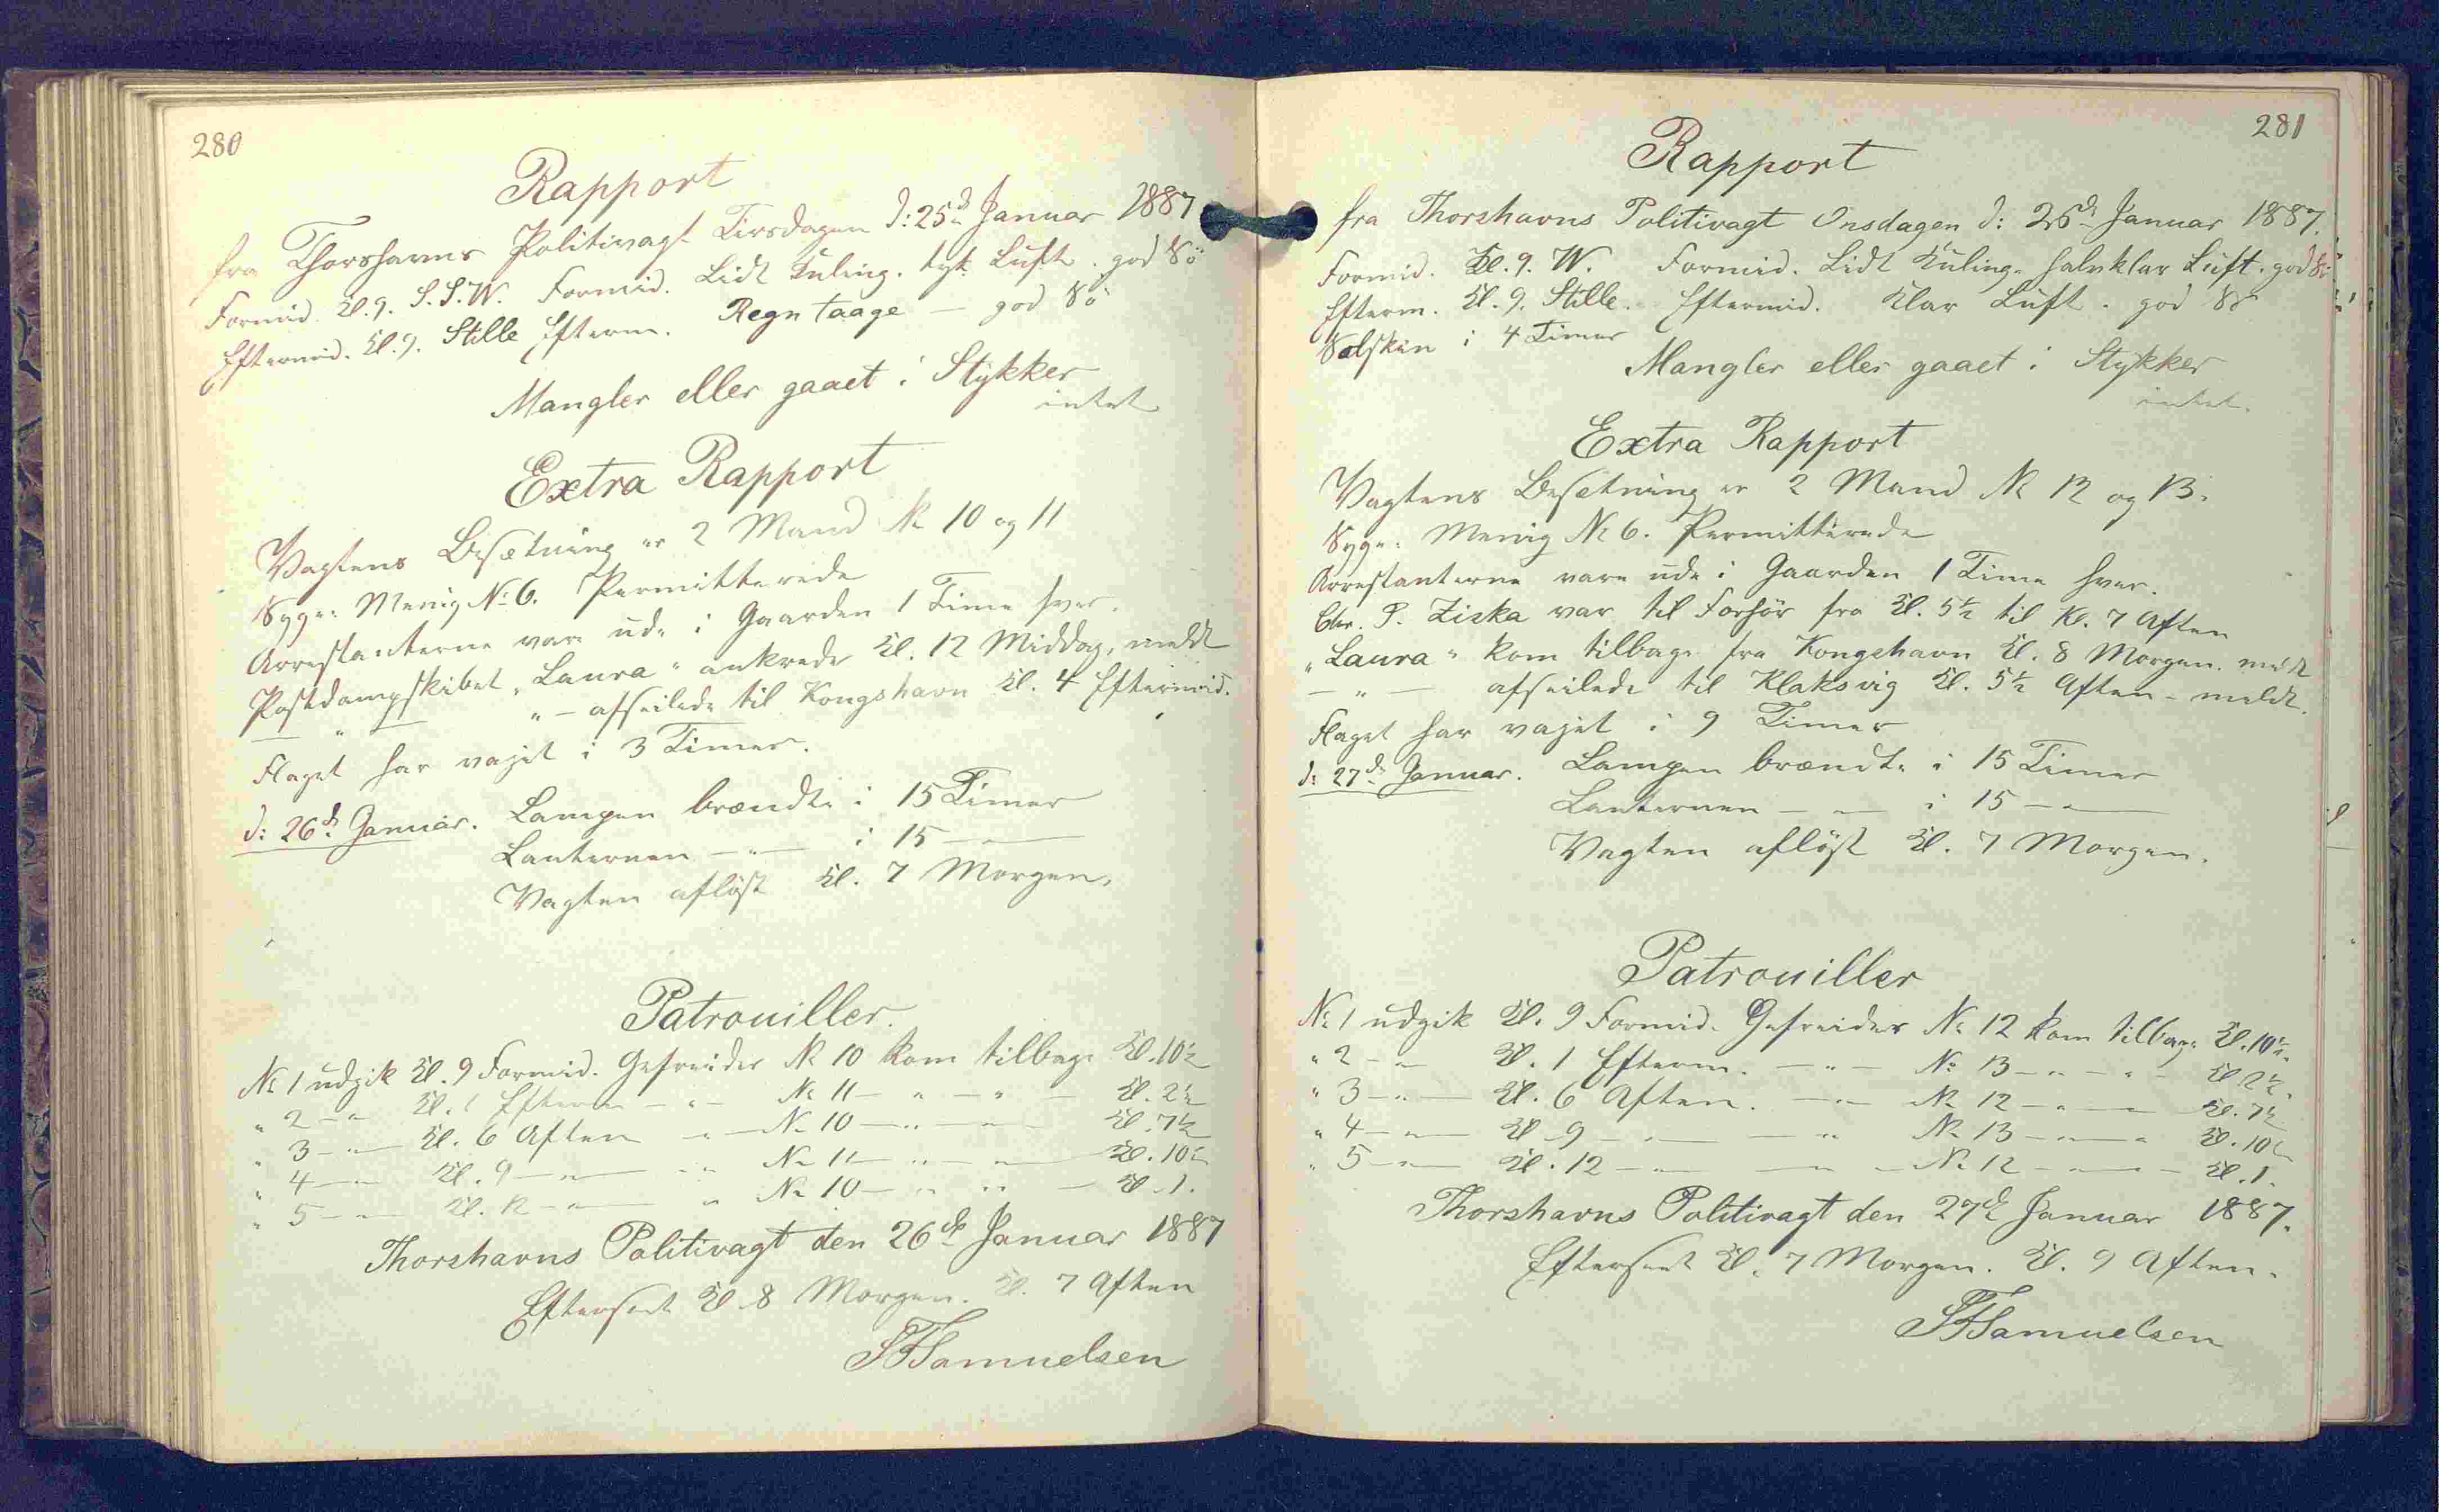 280
Rapport
fra Thorshavns Politivagt Tirsdagen d: 25de Januar 1887
Formid. Kl. 9. S.S.W. Formid. Lidt Kuling. tyk Luft. god Sö
Eftermid. Kl. 9. Stille Efterm. Regn Taage — god Sö
Mangler eller gaaet i Stykker
intet
Extra Rapport
Vagtens Besetning er 2 Mand № 10 og 11
Syge: Menig № 6. Permitterede
Arrestanterne vare ude i Gaarden 1 Time hver.
Postdampskibet „Laura" ankrede Kl. 12 Middag, meldt
— " — " — afseilede til Kongshavn Kl. 4 Eftermid.
Flaget har vajet i 3 Timer.
d: 26de Januar. Lampen brændte i 15 Timer
Lanternen — " — i 15 — " —
Vagten aflöst Kl. 7 Morgen.
Patrouiller.
№ 1 udgik Kl. 9 Formid. Gefreider № 10 kom tilbage Kl. 10½
" 2 — " Kl. 1 Efterm — " — № 11 — " — " — Kl. 2½
" 3 — " — Kl. 6 Aften — " — № 10 — " — " — Kl. 7½
" 4 — " Kl. 9 — " — " № 11 — " — " — Kl. 10½
" 5 — " Kl. 12 — " — " № 10 — " " — Kl. 1.
Thorshavns Politivagt den 26de Januar 1887
Efterseet Kl. 8 Morgen. Kl. 7 Aften
Samuelsen
281
Rapport
fra Thorshavns Politivagt Onsdagen d: 26de Januar 1887.
Formid. Kl. 9. W. Formid. Lidt Kuling. halvklar Luft. god Sö
Efterm. Kl. 9. Stille. Eftermid. Klar Luft. god Sö
Solskin i 4 Timer
Mangler eller gaaet i Stykker
intet.
Extra Rapport
Vagtens Besetning er 2 Mand № 12 og 13.
Syge: Menig № 6. Permitterede
Arrestanterne vare ude i Gaarden 1 Time hver.
Chr. P. Ziska var til Forhör fra Kl. 5½ til Kl. 7 Aften
„Laura" kom tilbage fra Kongshavn Kl. 8 Morgen. meldt
— " — afseilede til Klaksvig Kl. 5½ Aften - meldt.
Flaget har vajet i 9 Timer
d: 27de Januar. Lampen brændte i 15 Timer
Lanternen — " — i 15 — " —
Vagten aflöst Kl. 7 Morgen.
Patrouiller
№ 1 udgik Kl. 9 Formid. Gefreider № 12 kom tilbage Kl. 10½.
" 2 — " — Kl. 1 Efterm. — " — № 13 — " — " — Kl. 2½.
" 3 — " — Kl. 6 Aften. — " — № 12 — " — " — Kl. 7½
" 4 — " — Kl. 9 — " — — " № 13 — " — " Kl. 10½
" 5 — " — Kl. 12 — " — — " — № 12 — " — " — Kl. 1.
Thorshavns Politivagt den 27de Januar 1887.
Efterseet Kl. 7 Morgen. Kl. 9 Aften.
Samuelsen